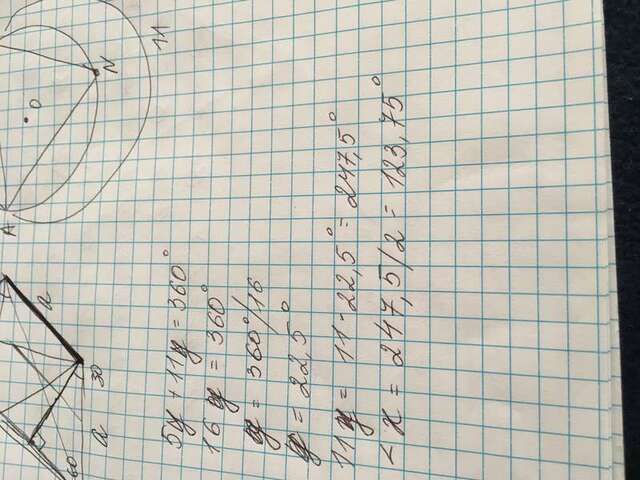 A
O
N
11
a
a
30
60
5y + 11y = 360°
16y = 360°
y = 360°/16
y = 22,5°
11y = 11·22,5° = 247,5°
∠x = 247,5/2 = 123,75°